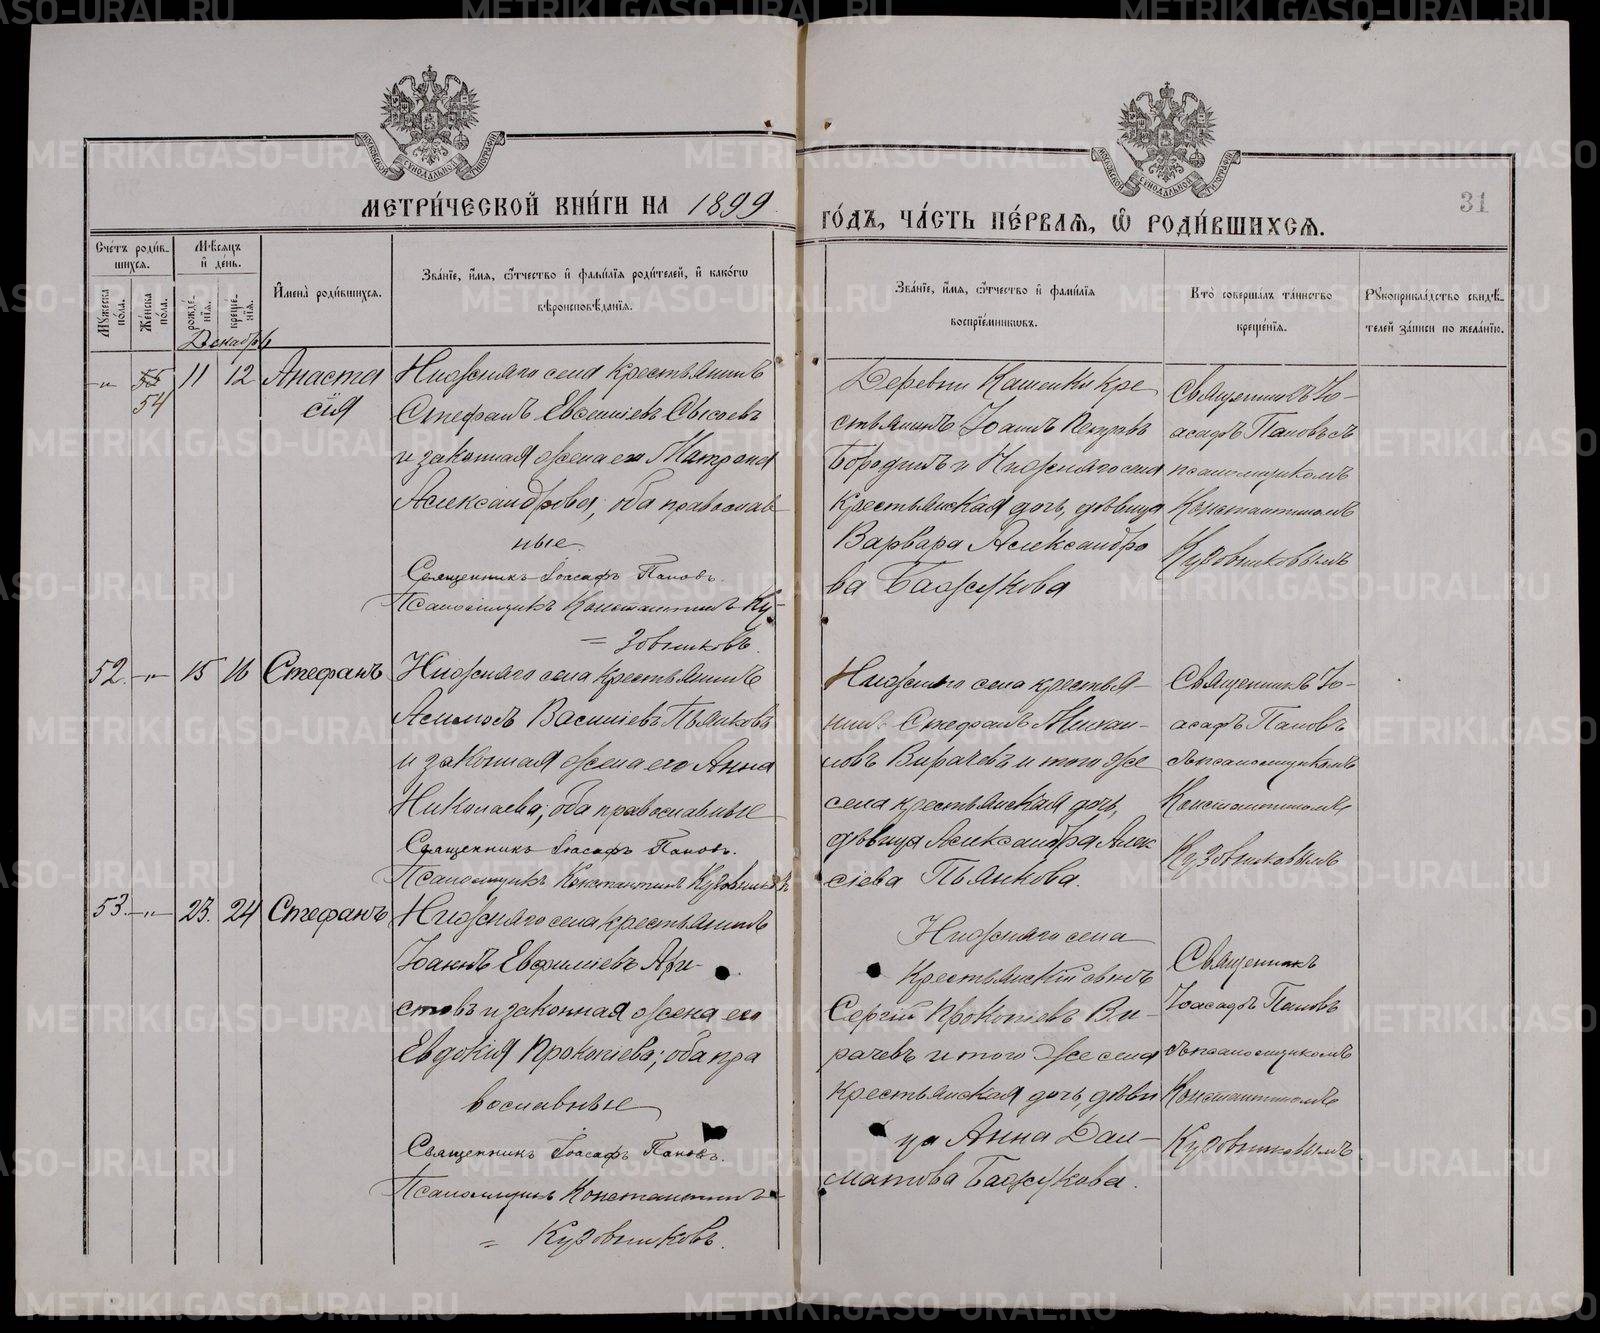 МЕТРИ́ЧЕСКОЙ КНИ́ГИ НА 1899
ГО́ДЪ, ЧА́СТЬ ПЕ́РВАѦ, Ѽ РОДИ́ВШИХСѦ.
31
Сче́тъ роди́в-
шихсѧ.
Мѣ́сѧцъ
и҆ де́нь.
Мꙋжеска по́ла.
Же́нска по́ла.
рожде́-
нїѧ.
креще́-
нїѧ.
И҆мена̀ роди́вшихсѧ.
Зва́нїе, и҆́мѧ, ѻ҆́тчество и҆ фамі́лїѧ роди́телей, и҆ како́гѡ
вѣроисповѣ́данїѧ.
Зва́нїе, и҆́мѧ, ѻ҆́тчество и҆ фамі́лїѧ
воспрїе́мникѡвъ.
Кто̀ соверша́лъ та́инство
креще́нїѧ.
Рꙋкоприкла́дство свидѣ́-
телей за́писи по жела́нїю.
Декабрь
-"- 55 54 11 12 Анаста
сія
Нижняго села крестьянинъ
Стефанъ Евсеміевъ Сысоевъ
и законная жена его Матрона
Александрова; оба православ-
ные.
Священникъ Іоасафъ Поповъ.
Псаломщикъ Константинъ Ку-
= зовниковъ.
Деревни Кашенки кре
стьянинъ Іоаннъ Петровъ
Бородинъ и Нижняго села
крестьянская дочь, дѣвица
Варвара Александро
ва Бажукова
Священникъ Іо-
асафъ Поповъ съ
псаломщикомъ
Константиномъ
Кузовниковымъ
52. -"- 15 16 Стефанъ
Нижняго села крестьянинъ
Василіевъ Пьянковъ
и законная жена его Анна
Николаева; оба православные
Священникъ Іоасафъ Поповъ.
Псаломщикъ Константинъ Кузовниковъ
Нижняго села крестья-
нинъ Стефанъ Михаи-
ловъ Вирачевъ и того же
села крестьянская дочь,
дѣвица Александра Алек
сіева Пьянкова.
Священникъ Іо-
асафъ Поповъ
съ псаломщикомъ
Константиномъ
Кузовниковымъ
53. -"- 23. 24 Стефанъ
Нижняго села крестьянинъ
Іоаннъ Евфиміевъ Ари-
стовъ и законная жена его
Евдокія Прокопіева; оба пра
вославные
Священникъ Іоасафъ Поповъ.
Псаломщикъ Константинъ
= Кузовниковъ.
Нижняго села
крестьянскій сынъ
Сергій Прокопіевъ Ви-
рачевъ и того же села
крестьянская дочь, дѣви
ца Анна Дал-
матова Бажукова.
Священникъ
Іоасафъ Поповъ
съ псаломщикомъ
Константиномъ
Кузовниковымъ.